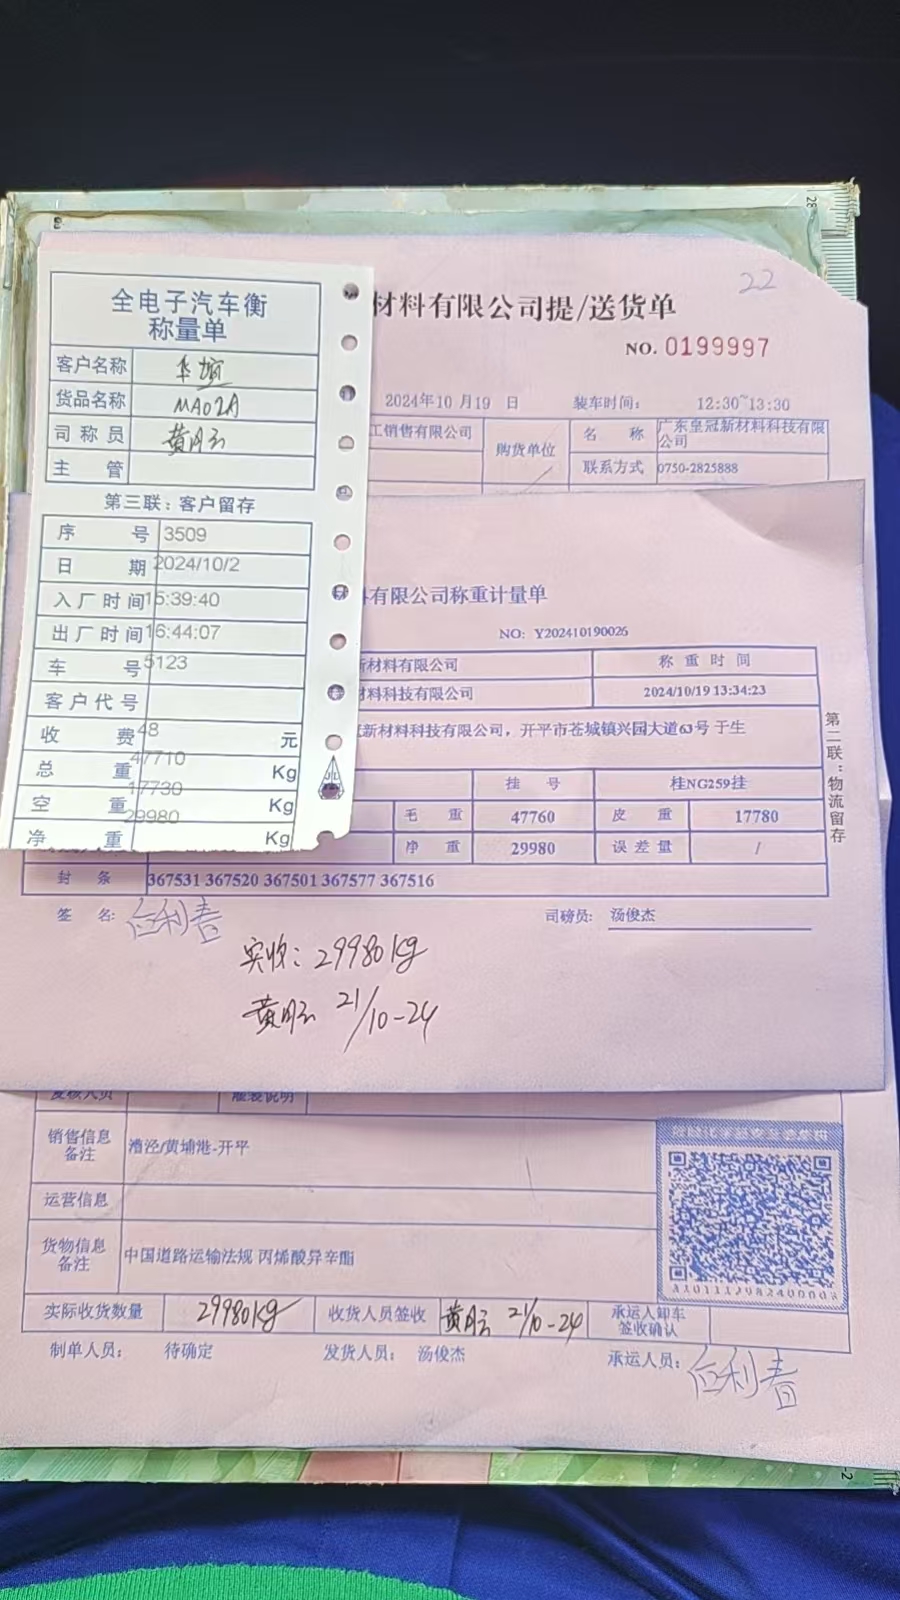 22
材料有限公司提/送货单
NO. 0199997
2024年10月19日 装车时间: 12:30~13:30
工销售有限公司 购货单位 名称 广东皇冠新材料科技有限公司
联系方式 0750-2825888
全电子汽车衡
称量单
客户名称
货品名称 MA02A
司称员
主管
第三联:客户留存
序号 3509
日期 2024/10/2
入厂时间 15:39:40
出厂时间 16:44:07
车号 5123
客户代号
收费 48 元
总重 47710 Kg
空重 17730 Kg
净重 29980 Kg
有限公司称重计量单
NO: Y202410190026
新材料有限公司 称重时间
材料科技有限公司 2024/10/19 13:34:23
冠新材料科技有限公司,开平市苍城镇兴园大道63号 于生
挂号 桂NG259挂
毛重 47760 皮重 17780
净重 29980 误差量 /
封条 367531 367520 367501 367577 367516
签名: 司磅员: 汤俊杰
第二联:物流留存
实收:29980kg
21/10-24
复核人员 服装说明
销售信息备注 漕泾/黄埔港-开平
运营信息
货物信息备注 中国道路运输法规 丙烯酸异辛酯
实际收货数量 29980kg 收货人员签收 21/10-24 承运人卸车签收确认
制单人员: 待确定 发货人员: 汤俊杰 承运人员: